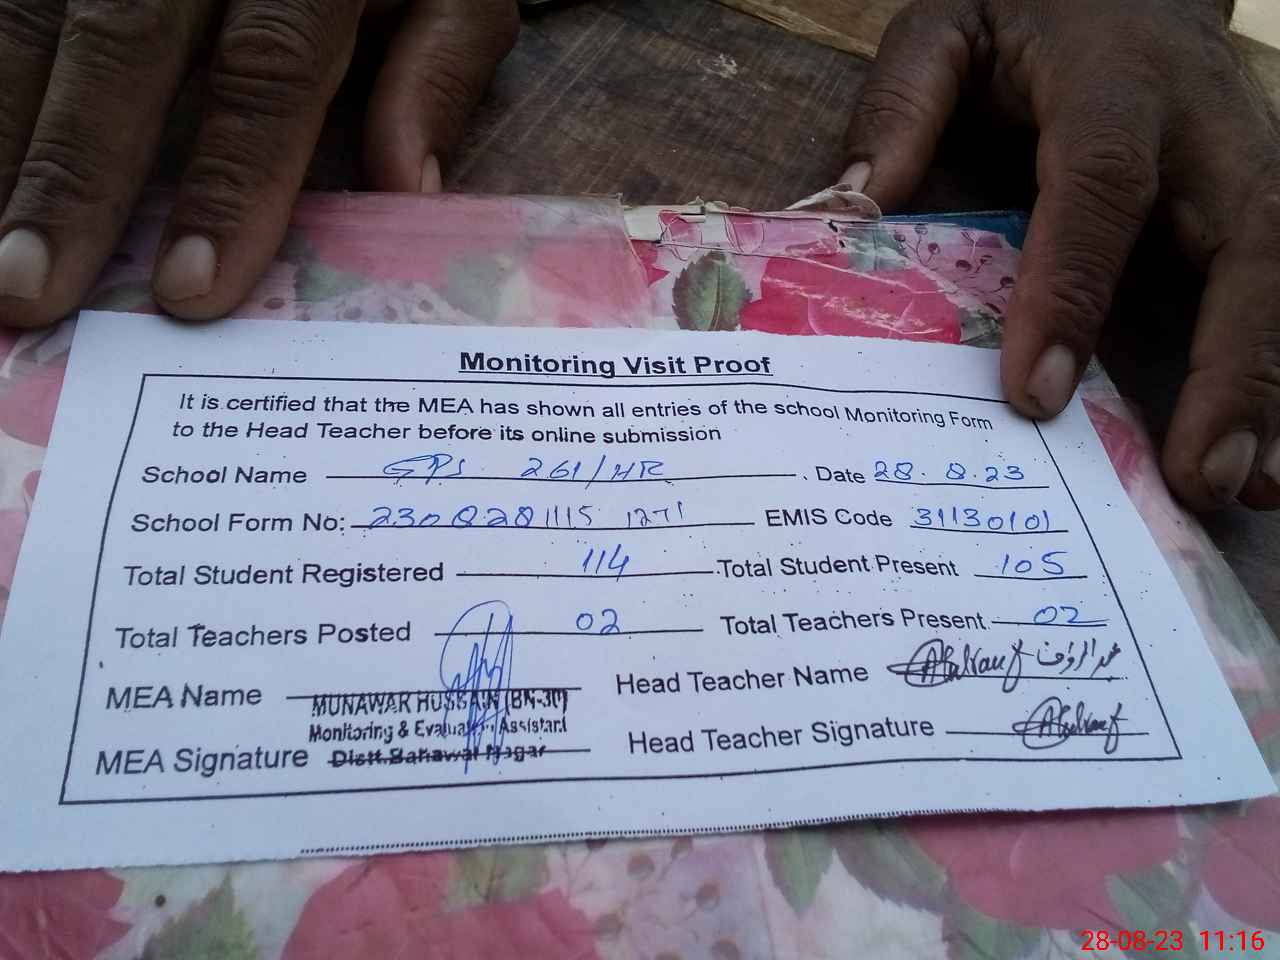 Monitoring Visit Proof
It is certified that the MEA has shown all entries of the school Monitoring Form
to the Head Teacher before its online submission
School Name GPS 261/HR Date 28.8.23
School Form No: 2308281115 1271 EMIS Code 31130101
Total Student Registered 114 Total Student Present 105
Total Teachers Posted 02 Total Teachers Present 02
MEA Name Head Teacher Name عبدالرؤف
MUNAWAR HUSSAIN (BN-30)
Monitoring & Evaluation Assistant
MEA Signature Distt.Bahawal Nagar Head Teacher Signature
28-08-23 11:16